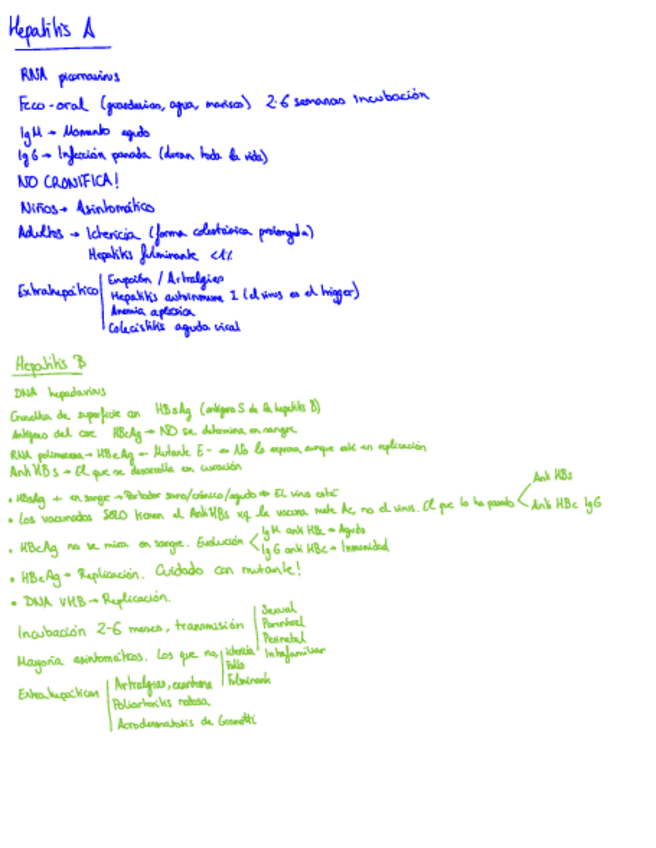 Hepatitis A
RNA picornavirus
Feco-oral (guarderias, agua, marisco) 2-6 semanas incubación
IgM → Momento agudo
IgG → Infección pasada (duran toda la vida)
NO CRONIFICA!
Niños → Asintomático
Adultos → Ictericia (forma colestásica prolongada)
Hepatitis fulminante <1%
Extrahepático
Erupción / Artralgias
Hepatitis autoinmune I (el virus es el trigger)
Anemia aplásica
Colecistitis aguda viral
Hepatitis B
DNA hepadnavirus
de superficie con HBsAg (antígeno S de la hepatitis B)
Antígeno del core HBcAg → NO se determina en sangre
RNA polimerasa → HBeAg → Mutante E- → No lo expresa aunque esté en replicación
Anti HBs → El que se desarrolla en curación
• HBsAg + en sangre → Portador sano/crónico/agudo → El virus está
• Los vacunados SOLO tienen el Anti HBs xq la vacuna mete Ac no el virus. El que lo ha pasado
Anti HBs
Anti HBc IgG
• HBcAg no se mira en sangre. Evolución
IgM anti HBc → Aguda
IgG anti HBc → Inmunidad
• HBeAg → Replicación. Cuidado con mutante!
• DNA VHB → Replicación.
Incubación 2-6 meses, transmisión
Sexual
Parenteral
Perinatal
Intrafamiliar
Mayoría asintomáticos. Los que no,
ictericia
Fulminante
Extrahepáticas
Artralgias, exantema
Poliarteritis nodosa
Acrodermatosis de Gianotti